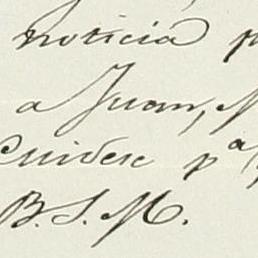 noticia p
a Juan, M
Cuidese pª
B. S. M.